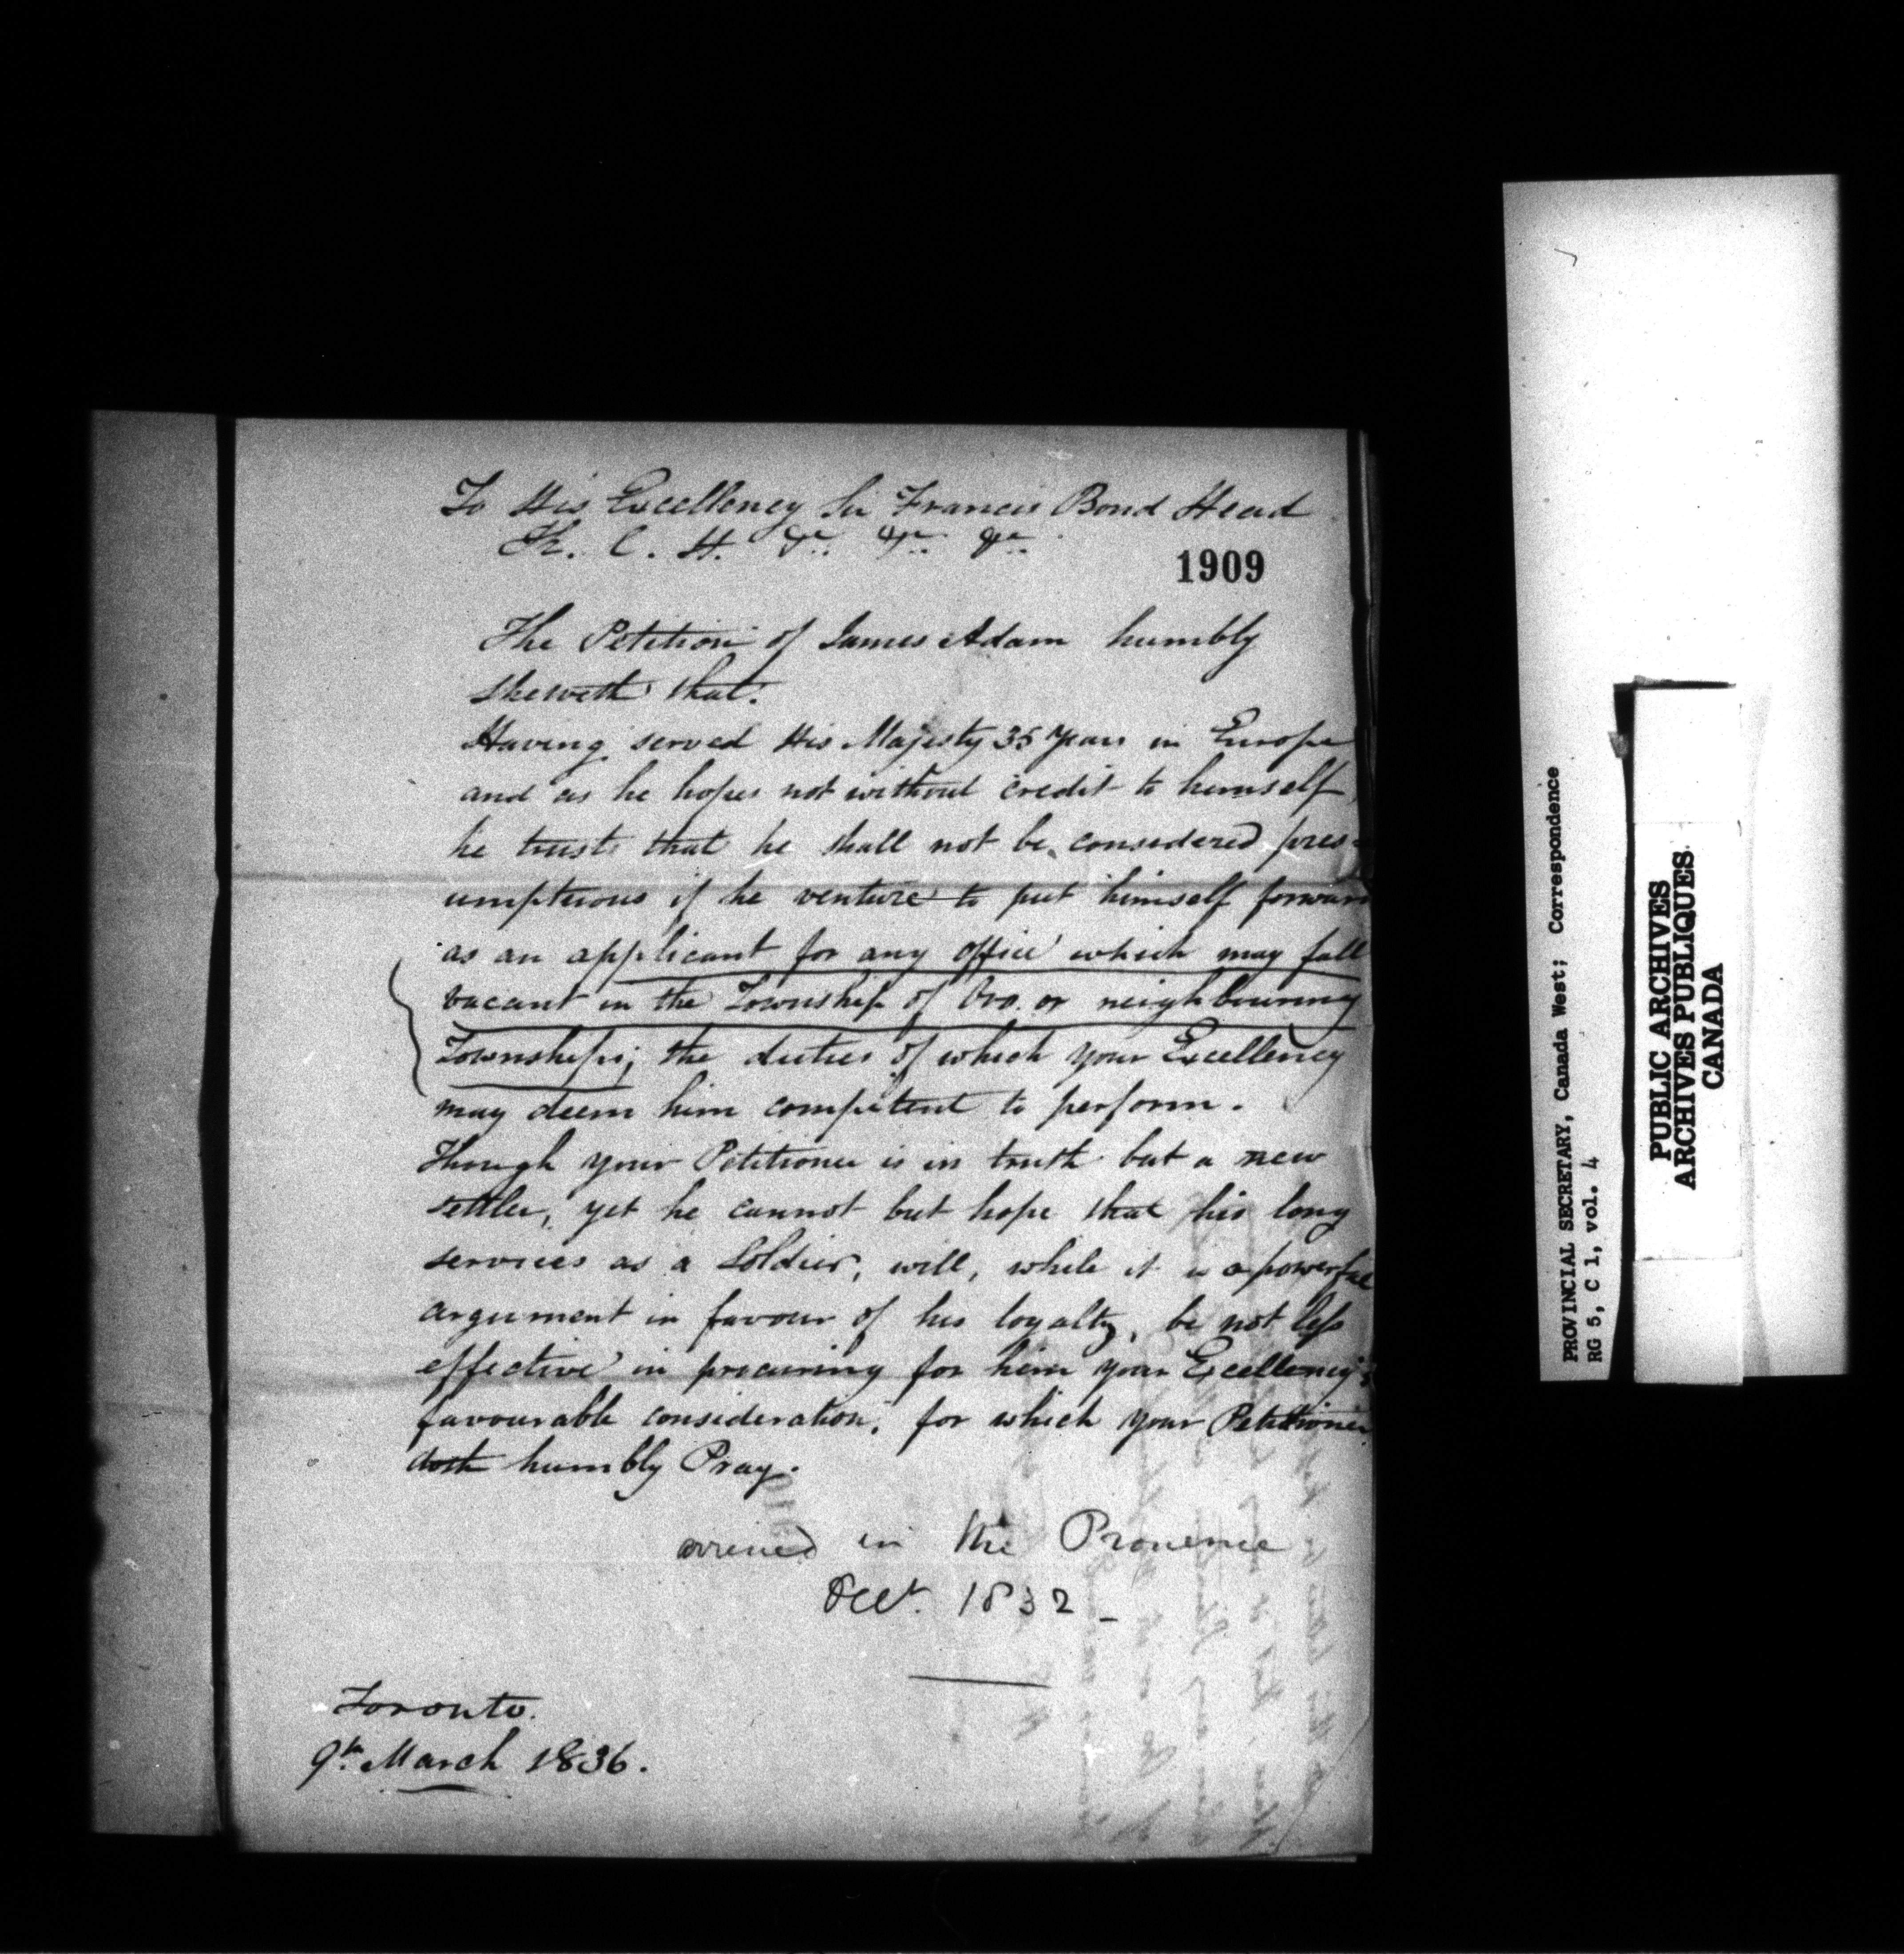 To His Excellency Sir Francis Bond Head
K. C. H. &c. &c. &c.
1909
The Petition of James Adam humbly
sheweth that.
Having served His Majesty 35 Years in Europe
and as he hopes not without credit to himself,
he trusts that he shall not be, considered pres=
umptuous if he venture to put himself forward
as an applicant for any office which may fall
vacant in the Township of Oro. or neighbouring
Townships; the duties of which your Excellency
may deem him competent to perform.
Though your Petitioner is in truth but a new
settler, yet he cannot but hope that his long
services as a Soldier, will, while it is a powerful
argument in favour of his loyalty, be not less
effective in procuring for him your Excellency's
favourable consideration, for which your Petitioner
doth humbly Pray.
arrived in the Province
Octr. 1832 -
Toronto.
9th March 1836.
PROVINCIAL SECRETARY, Canada West; Correspondence
RG 5, C 1, vol. 4
PUBLIC ARCHIVES
ARCHIVES PUBLIQUES
CANADA